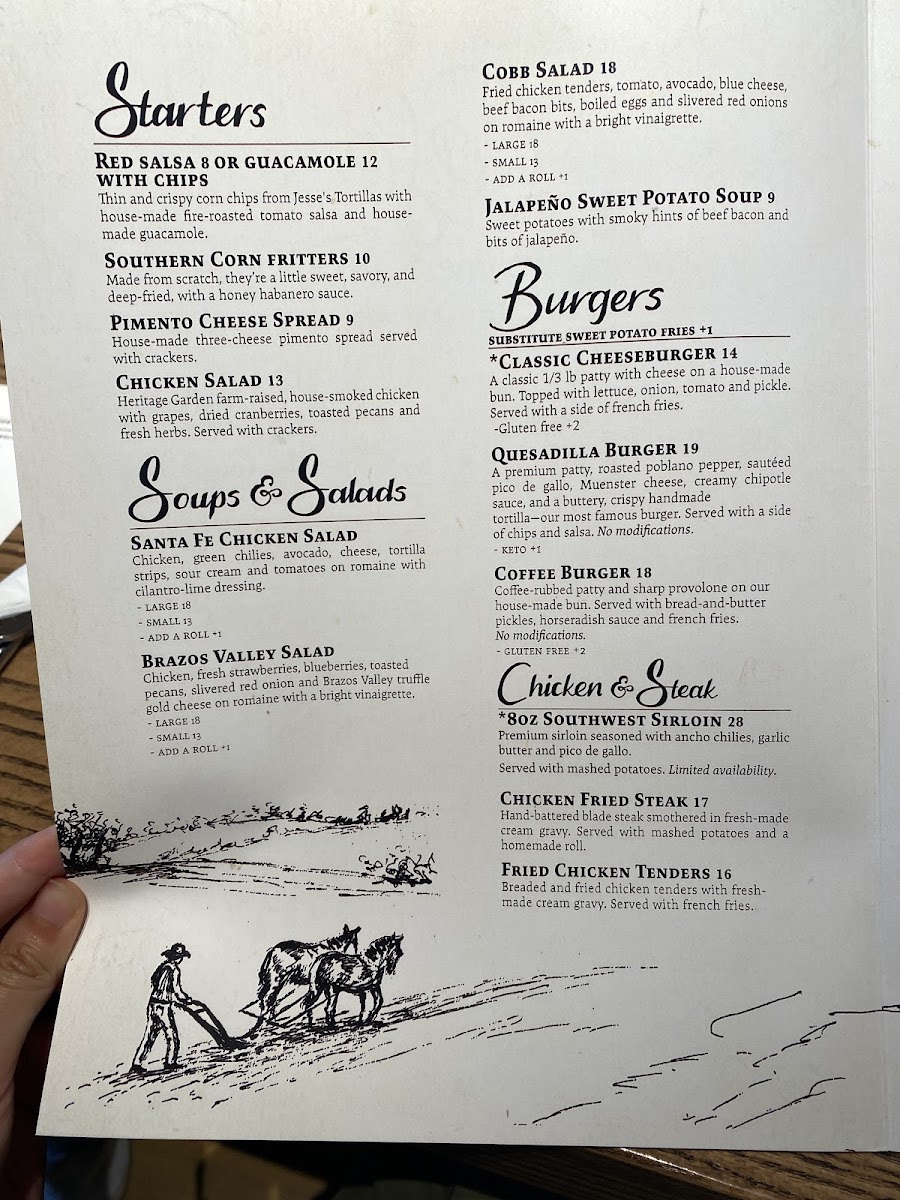 Starters
RED SALSA 8 OR GUACAMOLE 12
WITH CHIPS
Thin and crispy corn chips from Jesse's Tortillas with
house-made fire-roasted tomato salsa and house-
made guacamole.
SOUTHERN CORN FRITTERS 10
Made from scratch, they're a little sweet, savory, and
deep-fried, with a honey habanero sauce.
PIMENTO CHEESE SPREAD 9
House-made three-cheese pimento spread served
with crackers.
CHICKEN SALAD 13
Heritage Garden farm-raised, house-smoked chicken
with grapes, dried cranberries, toasted pecans and
fresh herbs. Served with crackers.
Soups & Salads
SANTA FE CHICKEN SALAD
Chicken, green chilies, avocado, cheese, tortilla
strips, sour cream and tomatoes on romaine with
cilantro-lime dressing.
- LARGE 18
- SMALL 13
- ADD A ROLL +1
BRAZOS VALLEY SALAD
Chicken, fresh strawberries, blueberries, toasted
pecans, slivered red onion and Brazos Valley truffle
gold cheese on romaine with a bright vinaigrette.
- LARGE 18
- SMALL 13
- ADD A ROLL +1
COBB SALAD 18
Fried chicken tenders, tomato, avocado, blue cheese,
beef bacon bits, boiled eggs and slivered red onions
on romaine with a bright vinaigrette.
- LARGE 18
- SMALL 13
- ADD A ROLL +1
JALAPEÑO SWEET POTATO SOUP 9
Sweet potatoes with smoky hints of beef bacon and
bits of jalapeño.
Burgers
SUBSTITUTE SWEET POTATO FRIES +1
*CLASSIC CHEESEBURGER 14
A classic 1/3 lb patty with cheese on a house-made
bun. Topped with lettuce, onion, tomato and pickle.
Served with a side of french fries.
-Gluten free +2
QUESADILLA BURGER 19
A premium patty, roasted poblano pepper, sautéed
pico de gallo, Muenster cheese, creamy chipotle
sauce, and a buttery, crispy handmade
tortilla—our most famous burger. Served with a side
of chips and salsa. No modifications.
- KETO +1
COFFEE BURGER 18
Coffee-rubbed patty and sharp provolone on our
house-made bun. Served with bread-and-butter
pickles, horseradish sauce and french fries.
No modifications.
- GLUTEN FREE +2
Chicken & Steak
*8OZ SOUTHWEST SIRLOIN 28
Premium sirloin seasoned with ancho chilies, garlic
butter and pico de gallo.
Served with mashed potatoes. Limited availability.
CHICKEN FRIED STEAK 17
Hand-battered blade steak smothered in fresh-made
cream gravy. Served with mashed potatoes and a
homemade roll.
FRIED CHICKEN TENDERS 16
Breaded and fried chicken tenders with fresh-
made cream gravy. Served with french fries.